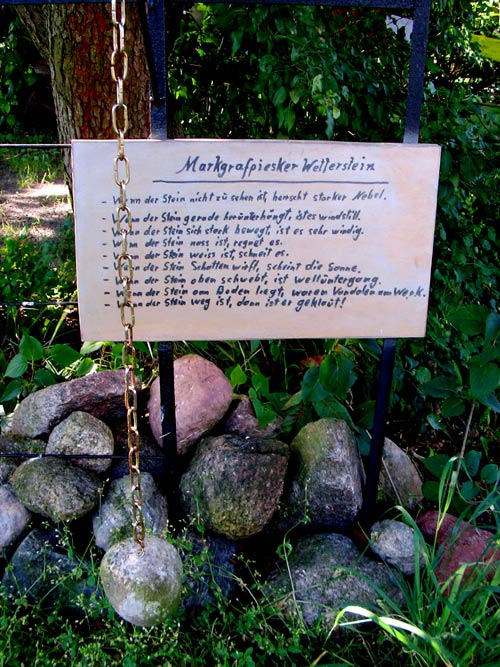 Markgrafpiesker Wetterstein
- Wenn der Stein nicht zu sehen ist, herrscht starker Nebel.
- Wenn der Stein gerade herunterhängt, ist es windstill.
- Wenn der Stein sich stark bewegt, ist es sehr windig.
- Wenn der Stein nass ist, regnet es.
- Wenn der Stein weiss ist, schneit es.
- Wenn der Stein Schatten wirft, scheint die Sonne.
- Wenn der Stein oben schwebt, ist Weltuntergang.
- Wenn der Stein am Boden liegt, waren Vandalen am Werk.
- Wenn der Stein weg ist, dann ist er geklaut!